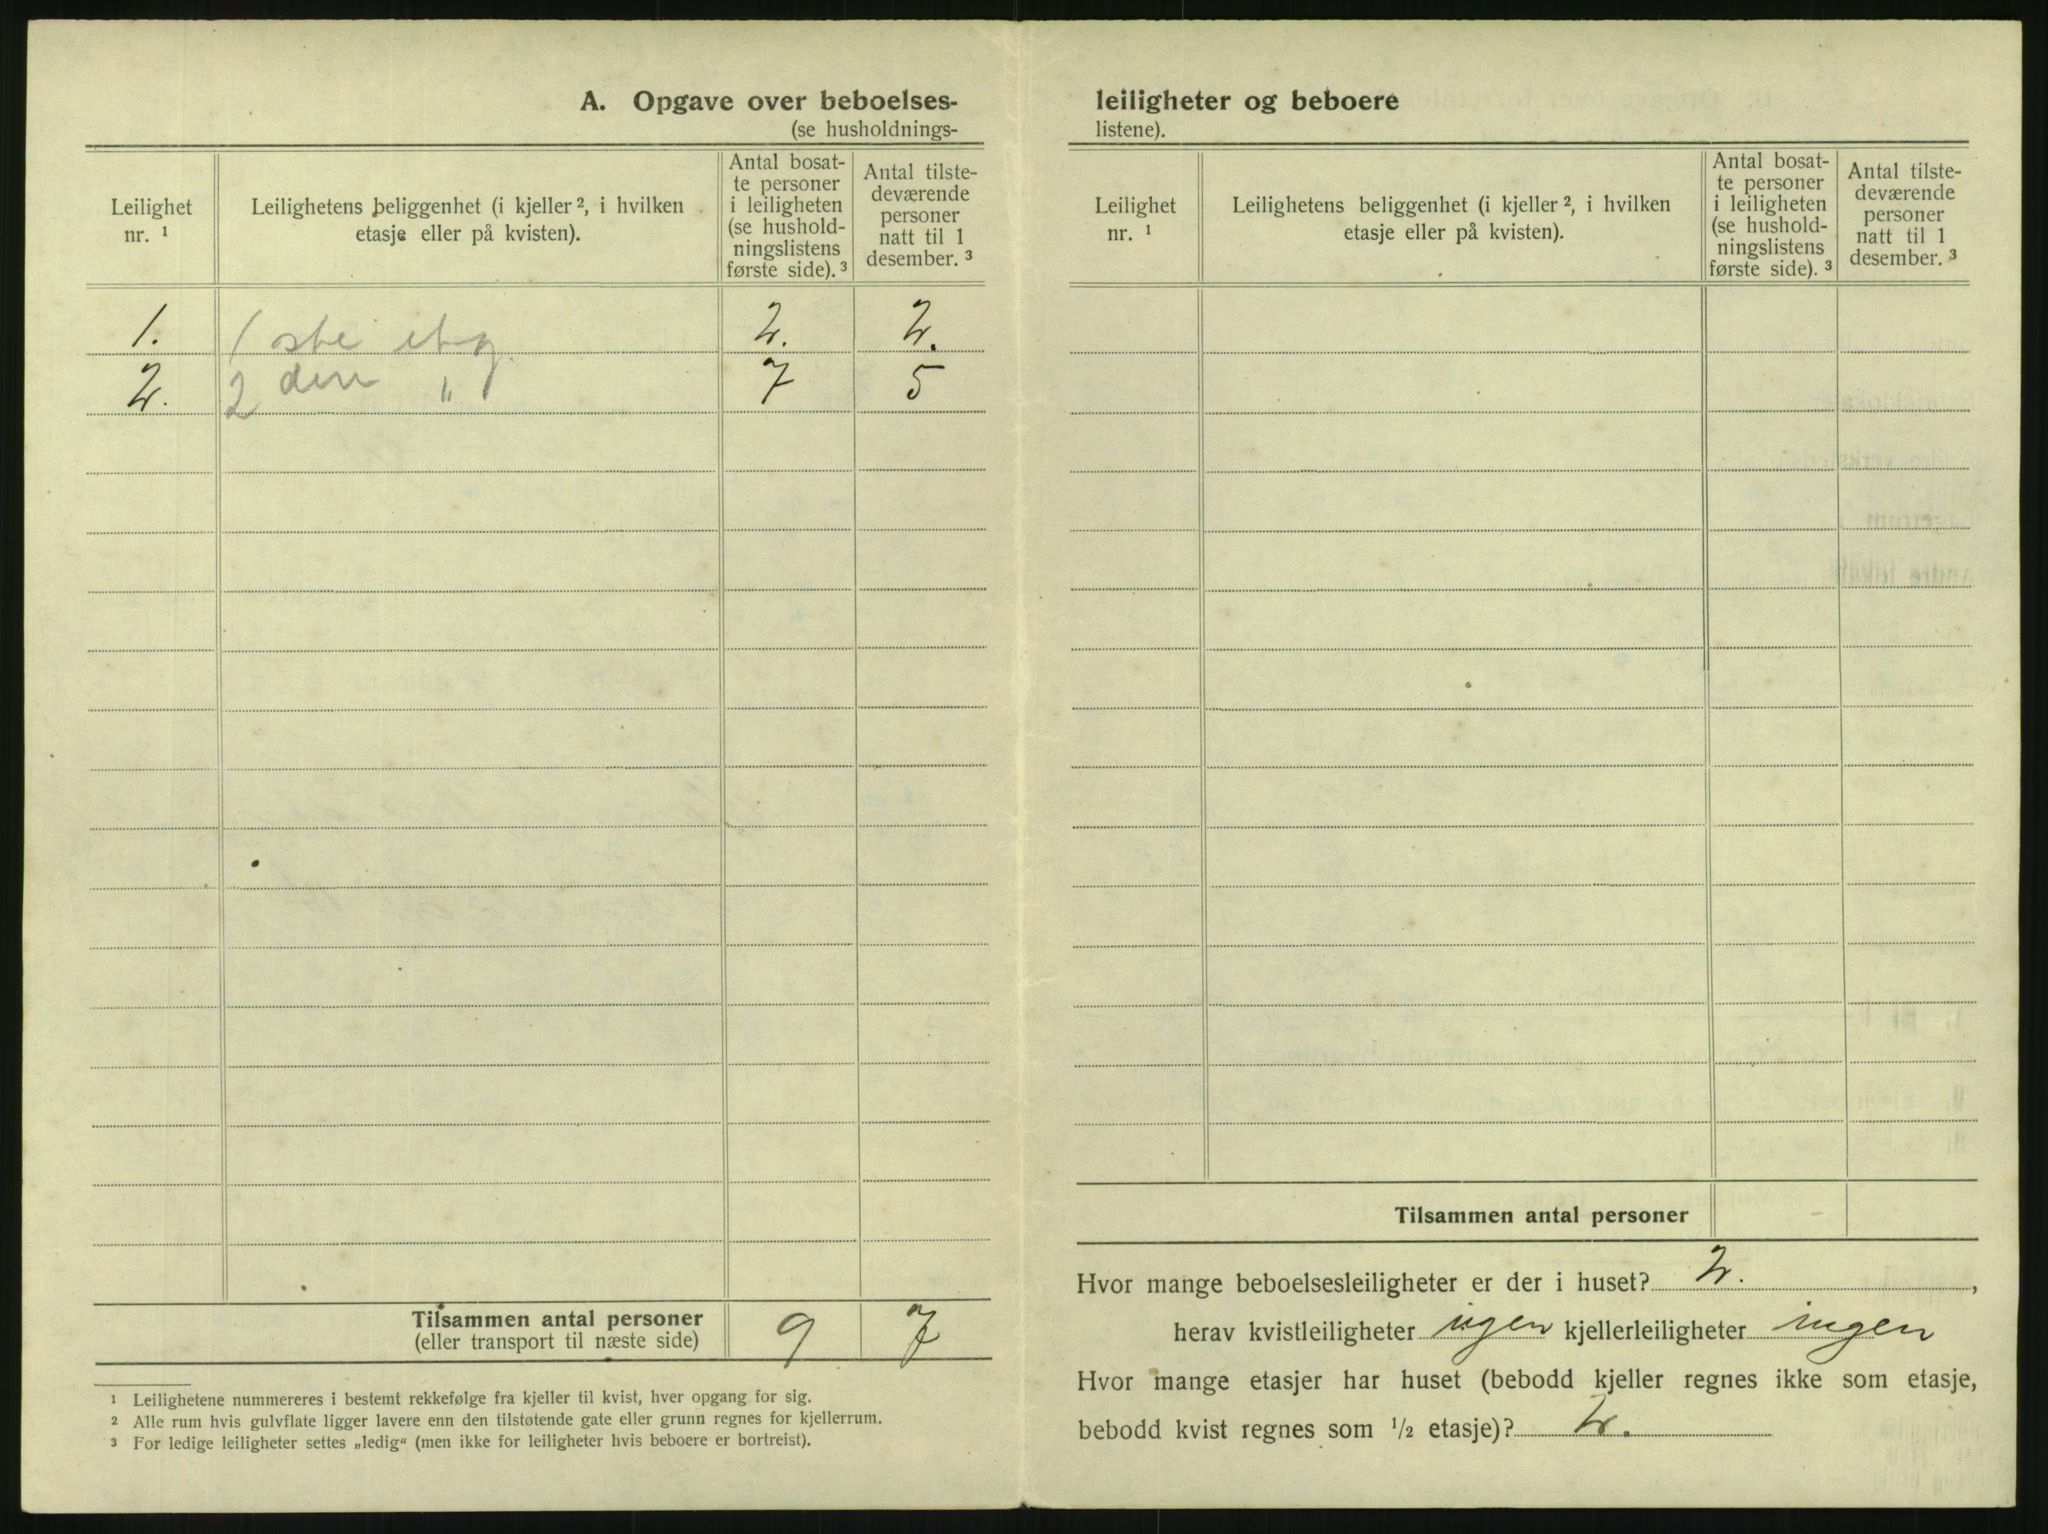 A. Opgave over beboelses-
(se husholdnings-
Leilighet nr. ¹
Leilighetens beliggenhet (i kjeller ², i hvilken etasje eller på kvisten).
Antal bosatte personer i leiligheten (se husholdningslistens første side). ³
Antal tilstedeværende personer natt til 1 desember. ³
1. 1 ste etg. 2. 2.
2. 2 den " 7 5
Tilsammen antal personer 9 7
(eller transport til næste side)
¹ Leilighetene nummereres i bestemt rekkefølge fra kjeller til kvist, hver opgang for sig.
² Alle rum hvis gulvflate ligger lavere enn den tilstøtende gate eller grunn regnes for kjellerrum.
³ For ledige leiligheter settes „ledig“ (men ikke for leiligheter hvis beboere er bortreist).
leiligheter og beboere
listene).
Leilighet nr. ¹
Leilighetens beliggenhet (i kjeller ², i hvilken etasje eller på kvisten).
Antal bosatte personer i leiligheten (se husholdningslistens første side). ³
Antal tilstedeværende personer natt til 1 desember. ³
Tilsammen antal personer
Hvor mange beboelsesleiligheter er der i huset? 2.,
herav kvistleiligheter ingen kjellerleiligheter ingen
Hvor mange etasjer har huset (bebodd kjeller regnes ikke som etasje,
bebodd kvist regnes som ½ etasje)? 2.